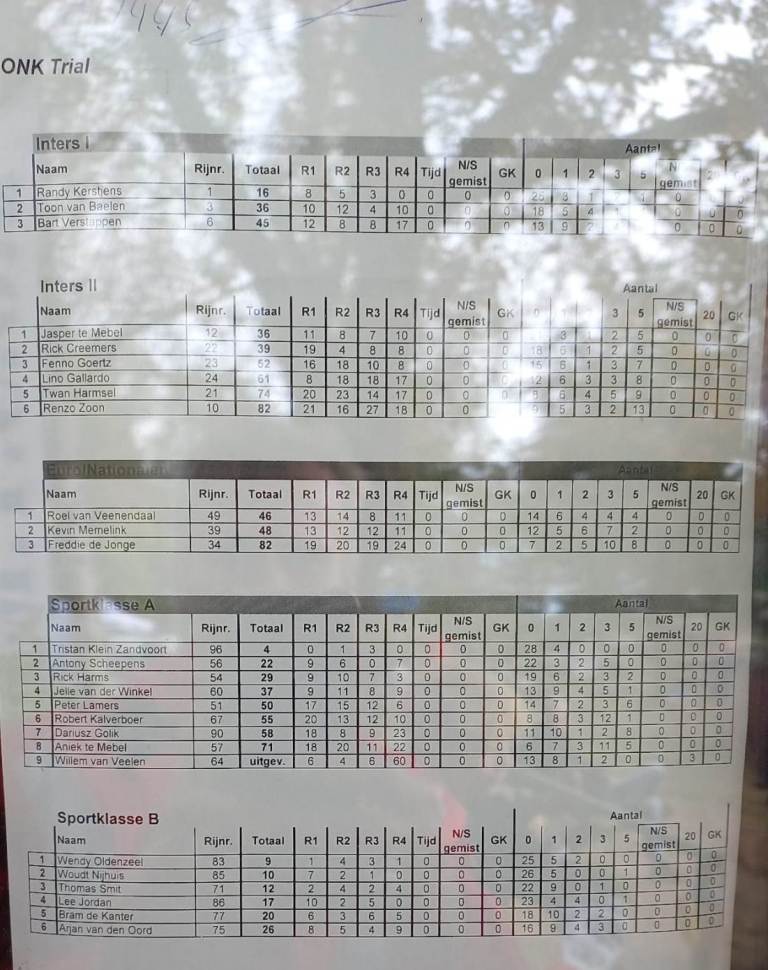 1995
ONK Trial
Inters I Aantal
Naam Rijnr. Totaal R1 R2 R3 R4 Tijd N/S gemist GK 0 1 2 3 5 N gemist 20
1 Randy Kershens 1 16 8 5 3 0 0 0 0 25 3 1 1 0
2 Toon van Baelen 3 36 10 12 4 10 0 0 0 18 5 4 0 0 0
3 Bart Verstappen 6 45 12 8 8 17 0 0 0 13 9 2 0 0 0
Inters II Aantal
Naam Rijnr. Totaal R1 R2 R3 R4 Tijd N/S gemist GK 0 1 3 5 N/S gemist 20 GK
1 Jasper te Mebel 12 36 11 8 7 10 0 0 0 3 2 5 0 0 0
2 Rick Creemers 22 39 19 4 8 8 0 0 0 18 6 1 2 5 0 0 0
3 Fenno Goertz 23 52 16 18 10 8 0 0 0 15 6 1 3 7 0 0 0
4 Lino Gallardo 24 61 8 18 18 17 0 0 0 12 6 3 3 8 0 0 0
5 Twan Harmsel 21 74 20 23 14 17 0 0 0 8 6 4 5 9 0 0 0
6 Renzo Zoon 10 82 21 16 27 18 0 0 9 5 3 2 13 0 0 0
Euro/Nationalen Aantal
Naam Rijnr. Totaal R1 R2 R3 R4 Tijd N/S gemist GK 0 1 2 3 5 N/S gemist 20 GK
1 Roel van Veenendaal 49 46 13 14 8 11 0 0 0 14 6 4 4 4 0 0 0
2 Kevin Memelink 39 48 13 12 12 11 0 0 0 12 5 6 7 2 0 0 0
3 Freddie de Jonge 34 82 19 20 19 24 0 0 0 7 2 5 10 8 0 0 0
Sportklasse A Aantal
Naam Rijnr. Totaal R1 R2 R3 R4 Tijd N/S gemist GK 0 1 2 3 5 N/S gemist 20 GK
1 Tristan Klein Zandvoort 96 4 0 1 3 0 0 0 0 28 4 0 0 0 0 0 0
2 Antony Scheepens 56 22 9 6 0 7 0 0 0 22 3 2 5 0 0 0 0
3 Rick Harms 54 29 9 10 7 3 0 0 0 19 6 2 3 2 0 0 0
4 Jelle van der Winkel 60 37 9 11 8 9 0 0 0 13 9 4 5 1 0 0 0
5 Peter Lamers 51 50 17 15 12 6 0 0 0 14 7 2 3 6 0 0 0
6 Robert Kalverboer 67 55 20 13 12 10 0 0 0 8 8 3 12 1 0 0 0
7 Dariusz Golik 90 58 18 8 9 23 0 0 0 11 10 1 2 8 0 0 0
8 Aniek te Mebel 57 71 18 20 11 22 0 0 0 6 7 3 11 5 0 0 0
9 Willem van Veelen 64 uitgev. 6 4 6 60 0 0 0 13 8 1 2 0 0 3 0
Sportklasse B Aantal
Naam Rijnr. Totaal R1 R2 R3 R4 Tijd N/S gemist GK 0 1 2 3 5 N/S gemist 20 GK
1 Wendy Oldenzeel 83 9 1 4 3 1 0 0 0 25 5 2 0 0 0 0 0
2 Woudt Nijhuis 85 10 7 2 1 0 0 0 0 26 5 0 0 1 0 0 0
3 Thomas Smit 71 12 2 4 2 4 0 0 0 22 9 0 1 0 0 0 0
4 Lee Jordan 86 17 10 2 5 0 0 0 0 23 4 4 0 1 0 0 0
5 Bram de Kanter 77 20 6 3 6 5 0 0 0 18 10 2 2 0 0 0 0
6 Arjan van den Oord 75 26 8 5 4 9 0 0 0 16 9 4 3 0 0 0 0